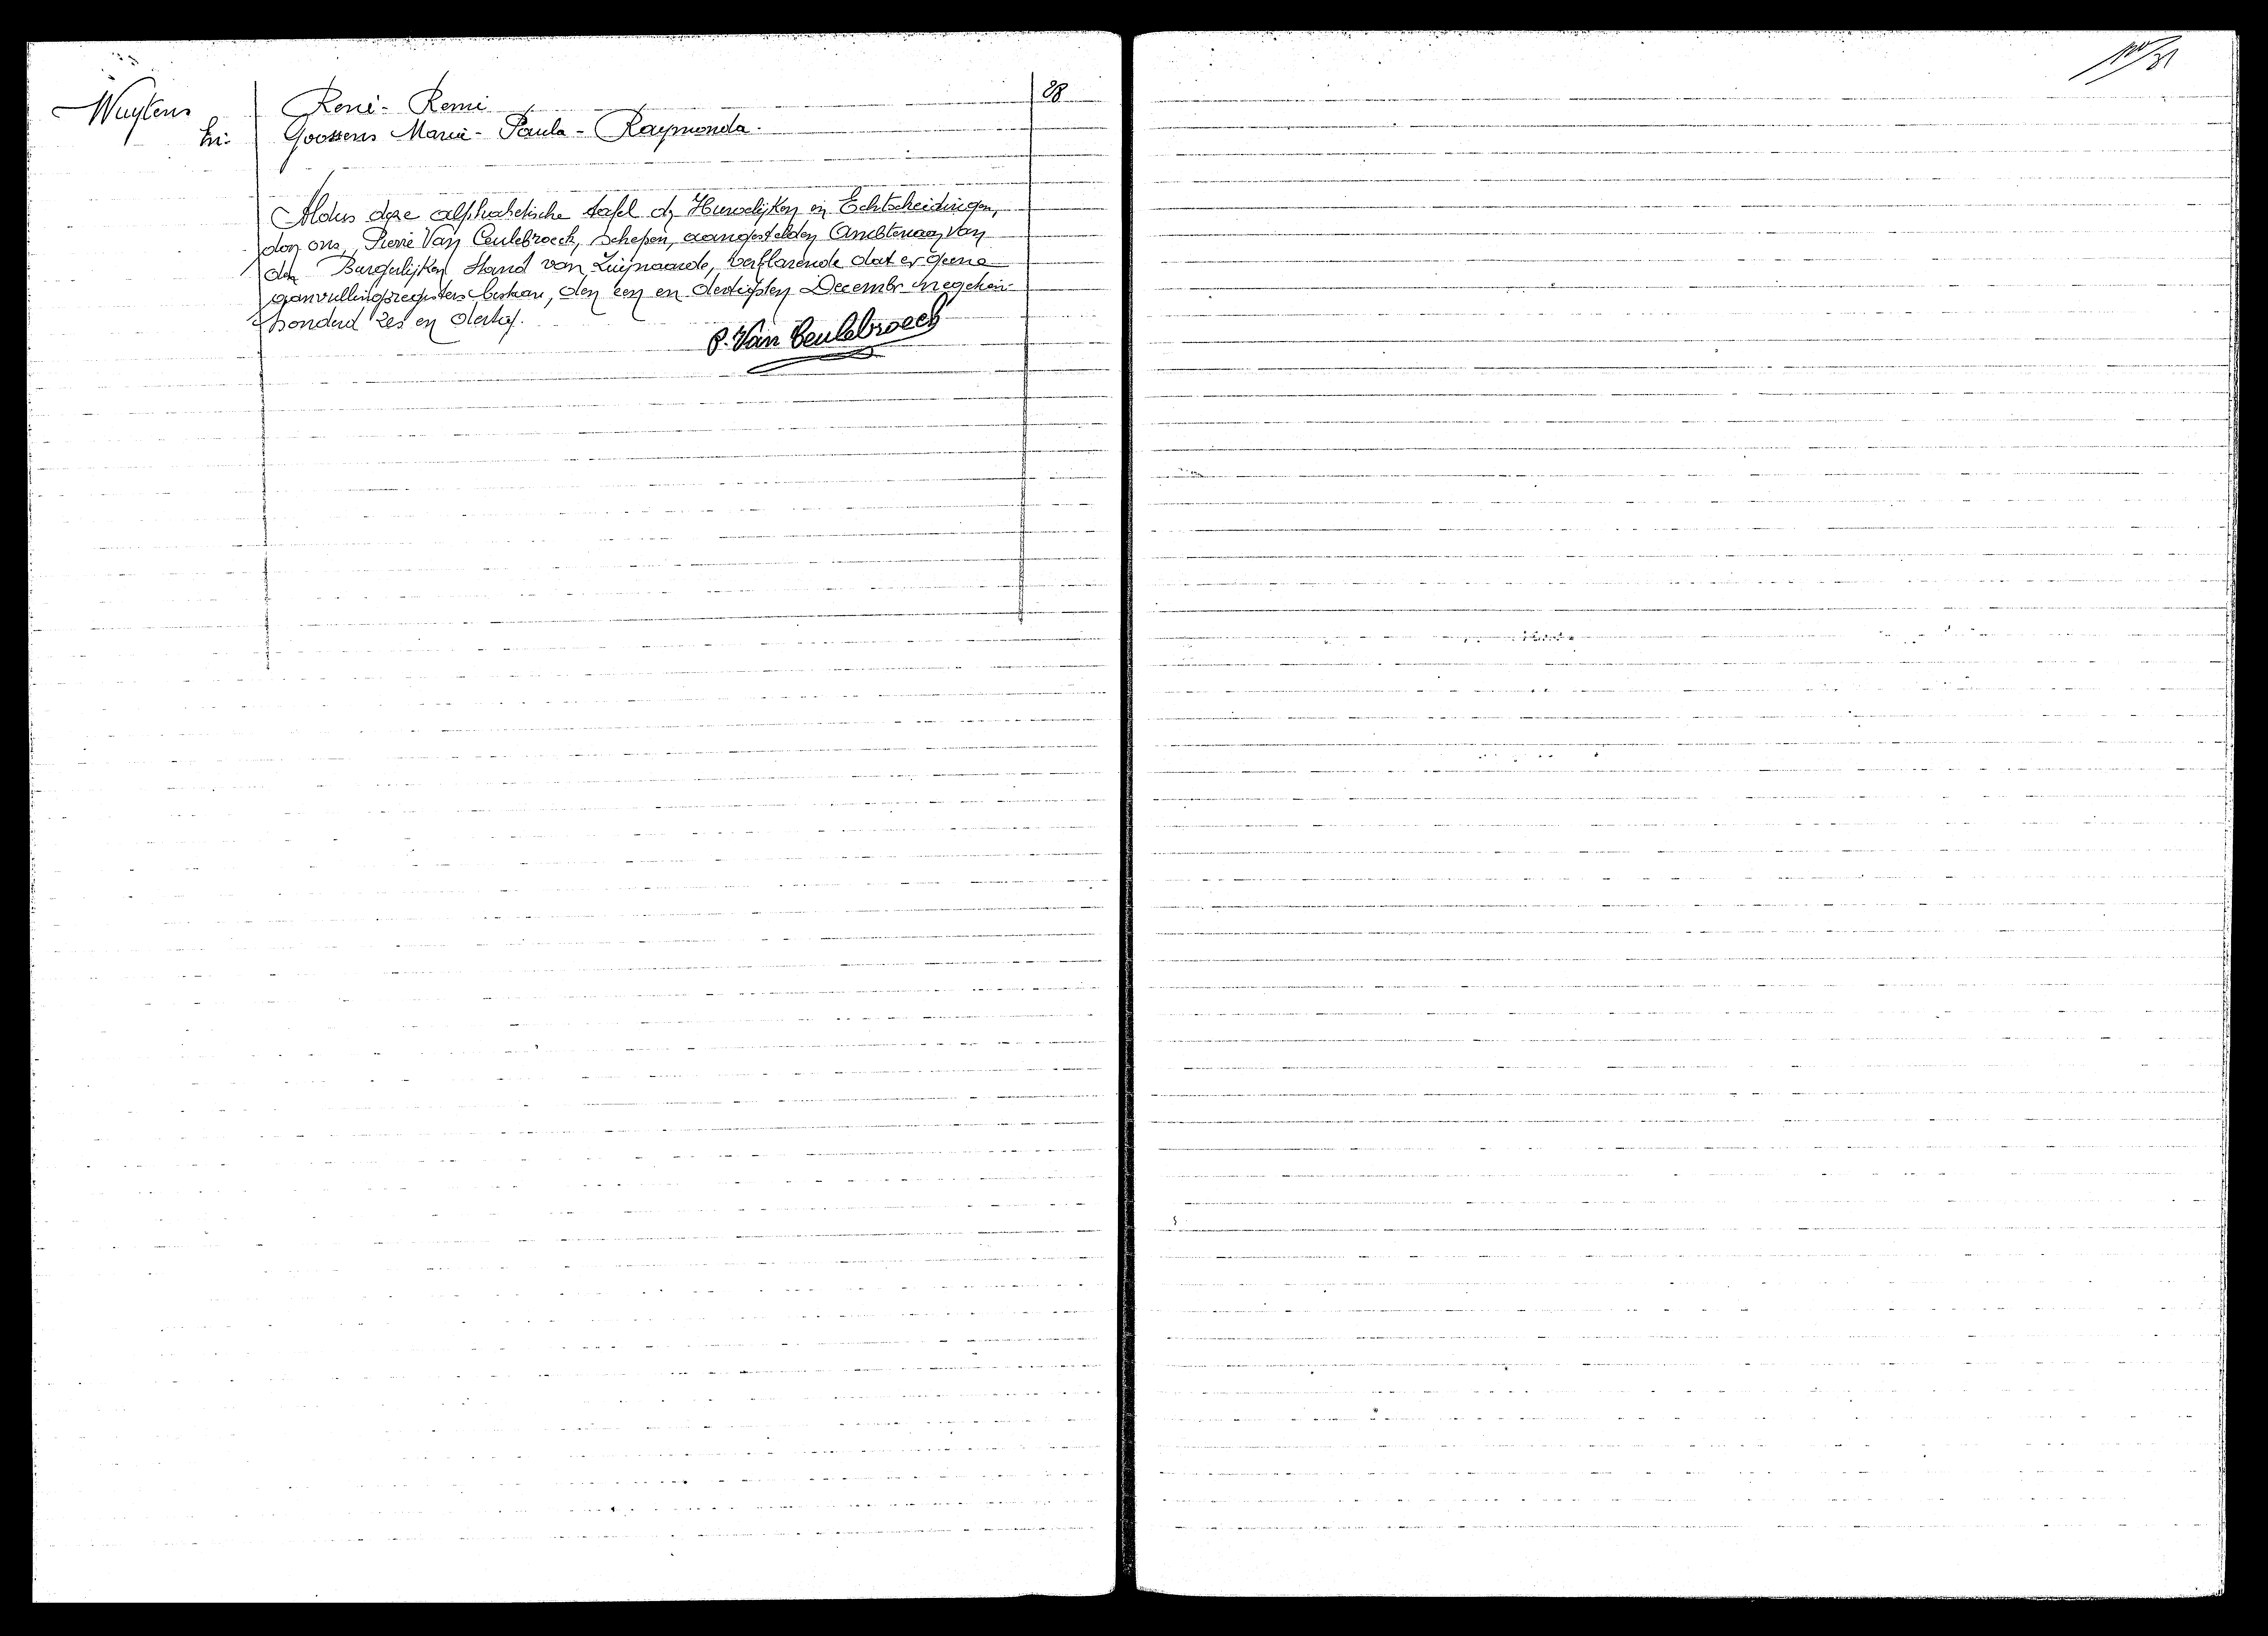 Wuytens René - Remi 28
en: Goossens Maria - Paula - Raymonda.
Aldus deze alphabetische tafel der Huwelijken en Echtscheidingen,
door ons, Pierre Van Ceulebroeck, schepen, aangestelden Ambtenaar van
den Burgerlijken Stand van Zwijnaarde, verklarende dat er geene
aanvullingsregisters bestaan, den een en dertigsten December negentien
honderd zes en dertig.
P. Van Ceulebroeck